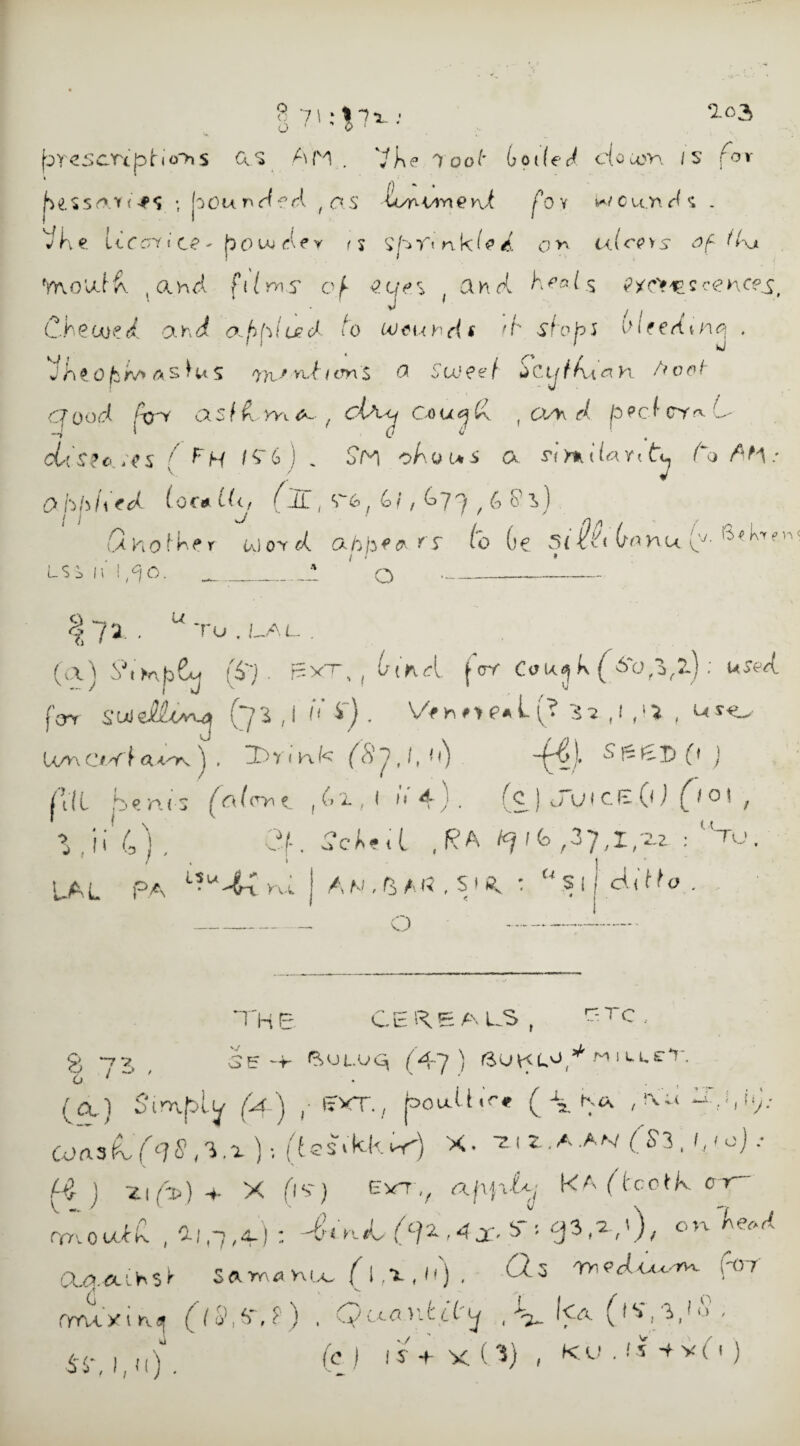 § 71 : § 72 : 203
prescriptions as AM. The root boiled down is for
pessaries ; pounded, as liniment for wounds.
The licorice-powder is sprinkled on ulcers of the
mouth, and films of eyes, and heals excrescences.
Chewed and applied to wounds it stops bleeding.
Theophrastus mentions a sweet Scythian root
good for asthma, dry cough, and pectoral
diseases (FH 156). SM shows a similarity to AM:
applied locally
Another word appears to be
LSS ii 1,90.
§ 72. ᵘ TU.LAL.
(a) Simply (5). EXT., bind for cough (50,3,2): used
for swelling (73,1 ii 5). Venereal (? 32,1,12, use
uncertain). Drink (87,1,11) (b). SEED (1)
fill penis (alone, 62, 1 ii 4). (c) JUICE (1) (101,
3, ii 6). Cf. Scheil, RA 1916, 37, I, 22 : ᵘTU.
LAL PA | AN.BAR.SIR : ᵘSI | ditto.
THE CEREALS, ETC.
§ 73, ŠE + BULUG (47) BUKLU,* MILLET.
(a) Simply (4), EXT., poultice
wash (98,3,2);
(b) X (15) EXT., apply KA (tooth or
mouth, 21,7,4): bind on head
against samanu (1,2,11). As medium for
mixing (18,5,8). Quantity, ½ ka (15,3,18,
55,1,11). (c) 15 + X (3), KU.15 + X (1)